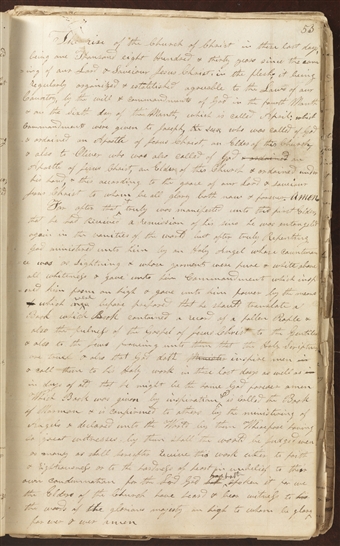 53
The rise of the Church of Christ in these last days
being one Thousand eight hundred & thirty years since the com
ing of our Lord & Saviour Jesus Christ, in the flesh, it being
regularly organized & established agreeable to the Laws of our
Country, by the will & commandments of God in the fourth Month
& on the sixth day of the Month, which is called April; which
Commandments were given to Joseph, the Seer who was called of God
& ordained an Apostle of Jesus Christ, an Elder of this Church
& also to Oliver who was also called of God
an Apostle of Jesus Christ, an Elder of this Church & ordained under
his hand, & this according to the grace of our Lord & Saviour
Jesus Christ to whom be all glory both now & forever Amen
For after that truly was manifested unto this first Elder
that he had received a remission of his sins he was entangled
again in the vanities of the world but after truly Repenting
God ministered unto him by an Holy Angel whose countenance
was as lightning & whose garments were pure & white above
all whiteness & gave unto him Commandments which insp
ired him from on high & gave unto him power by the means
which was before prepared that he should translate a
Book which Book contained a record of a fallen People &
also the fulness of the Gospel of Jesus Christ to the Gentiles
& also to the Jews proveing unto them that the Holy Scriptures
are true & also that God doth inspire men
& call them to his Holy work in these last days as well as
in days of old that he might be the same God forever amen
Which Book was given by inspiration & is called the Book
of Mormon & is confirmed to others by the ministering of
Angels & declared unto the World by them Wherefore having
so great witnesses by them shall the world be judged even
as many as shall hereafter receive this work either to faith
& righteousness or to the hardness of heart in unbelief to their
own condemnation for the Lord God hath spoken it for we
the Elders of the Church have heard & bear witness to
the words of the glorious majesty on high to whom be glory
for ever & ever amen